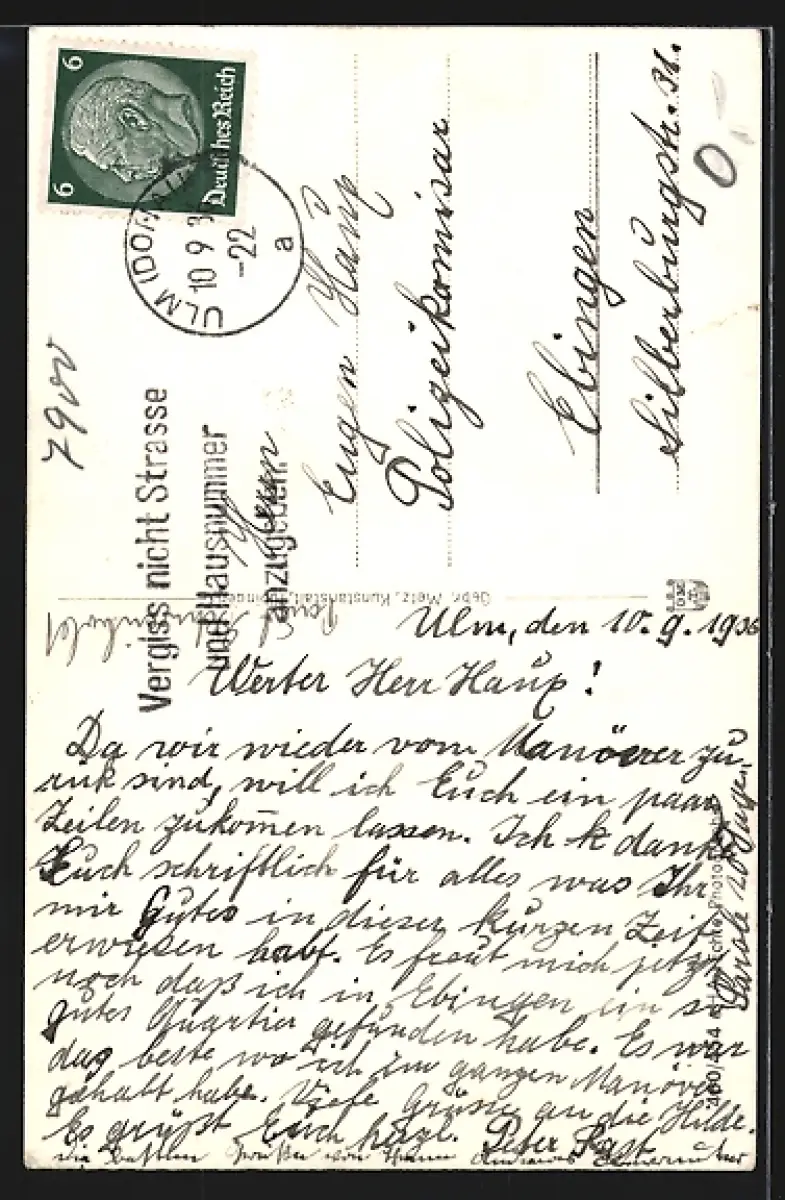 6
6
Deutsches Reich
ULM (DONAU)
10 9 3
-22
a
Vergiss nicht Strasse
und Hausnummer
anzugeben.
7900
0,-
Herrn
Eugen Haup
Polizeikomisar
Ebingen
Silberburgstr. 31.
Gebr. Metz, Kunstanstalt, Tübingen
Ulm, den 10. 9. 1936
Werter Herr Haup!
Da wir wieder vom Manöver zu-
rük sind, will ich Euch ein paar
Zeilen zukommen lassen. Ich danke
Euch schriftlich für alles was Ihr
mir Gutes in dieser kurzen Zeit
erwiesen habt. Es freut mich jetzt
noch daß ich in Ebingen ein so
gutes Quartier gefunden habe. Es war
das beste wo ich im ganzen Manöver
gehalt habe. Viele Grüsse an die Hilde.
Es grüßt Euch herzl. Peter
Die besten Grüße von
Parole 20 Tage